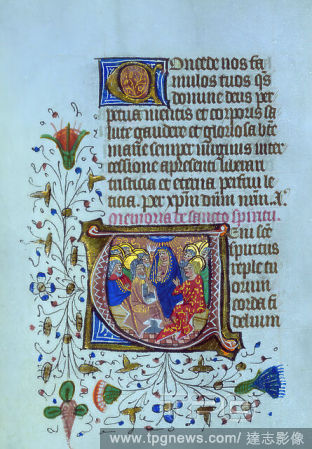 Concede nos fa
mulos tuos qs
domine deus per
petua mentis et corporis sa
lute gaudere et gloriosa bte
marie semper virginis inter
cessione a presenti liberari
tristicia et eterna perfrui le
ticia. Per xpm dnm nrm. A
Memoria de sancto spiritu.
Veni sce
spiritus
reple tu
orum
corda fi
delium
www.tpgnews.com/達志影像